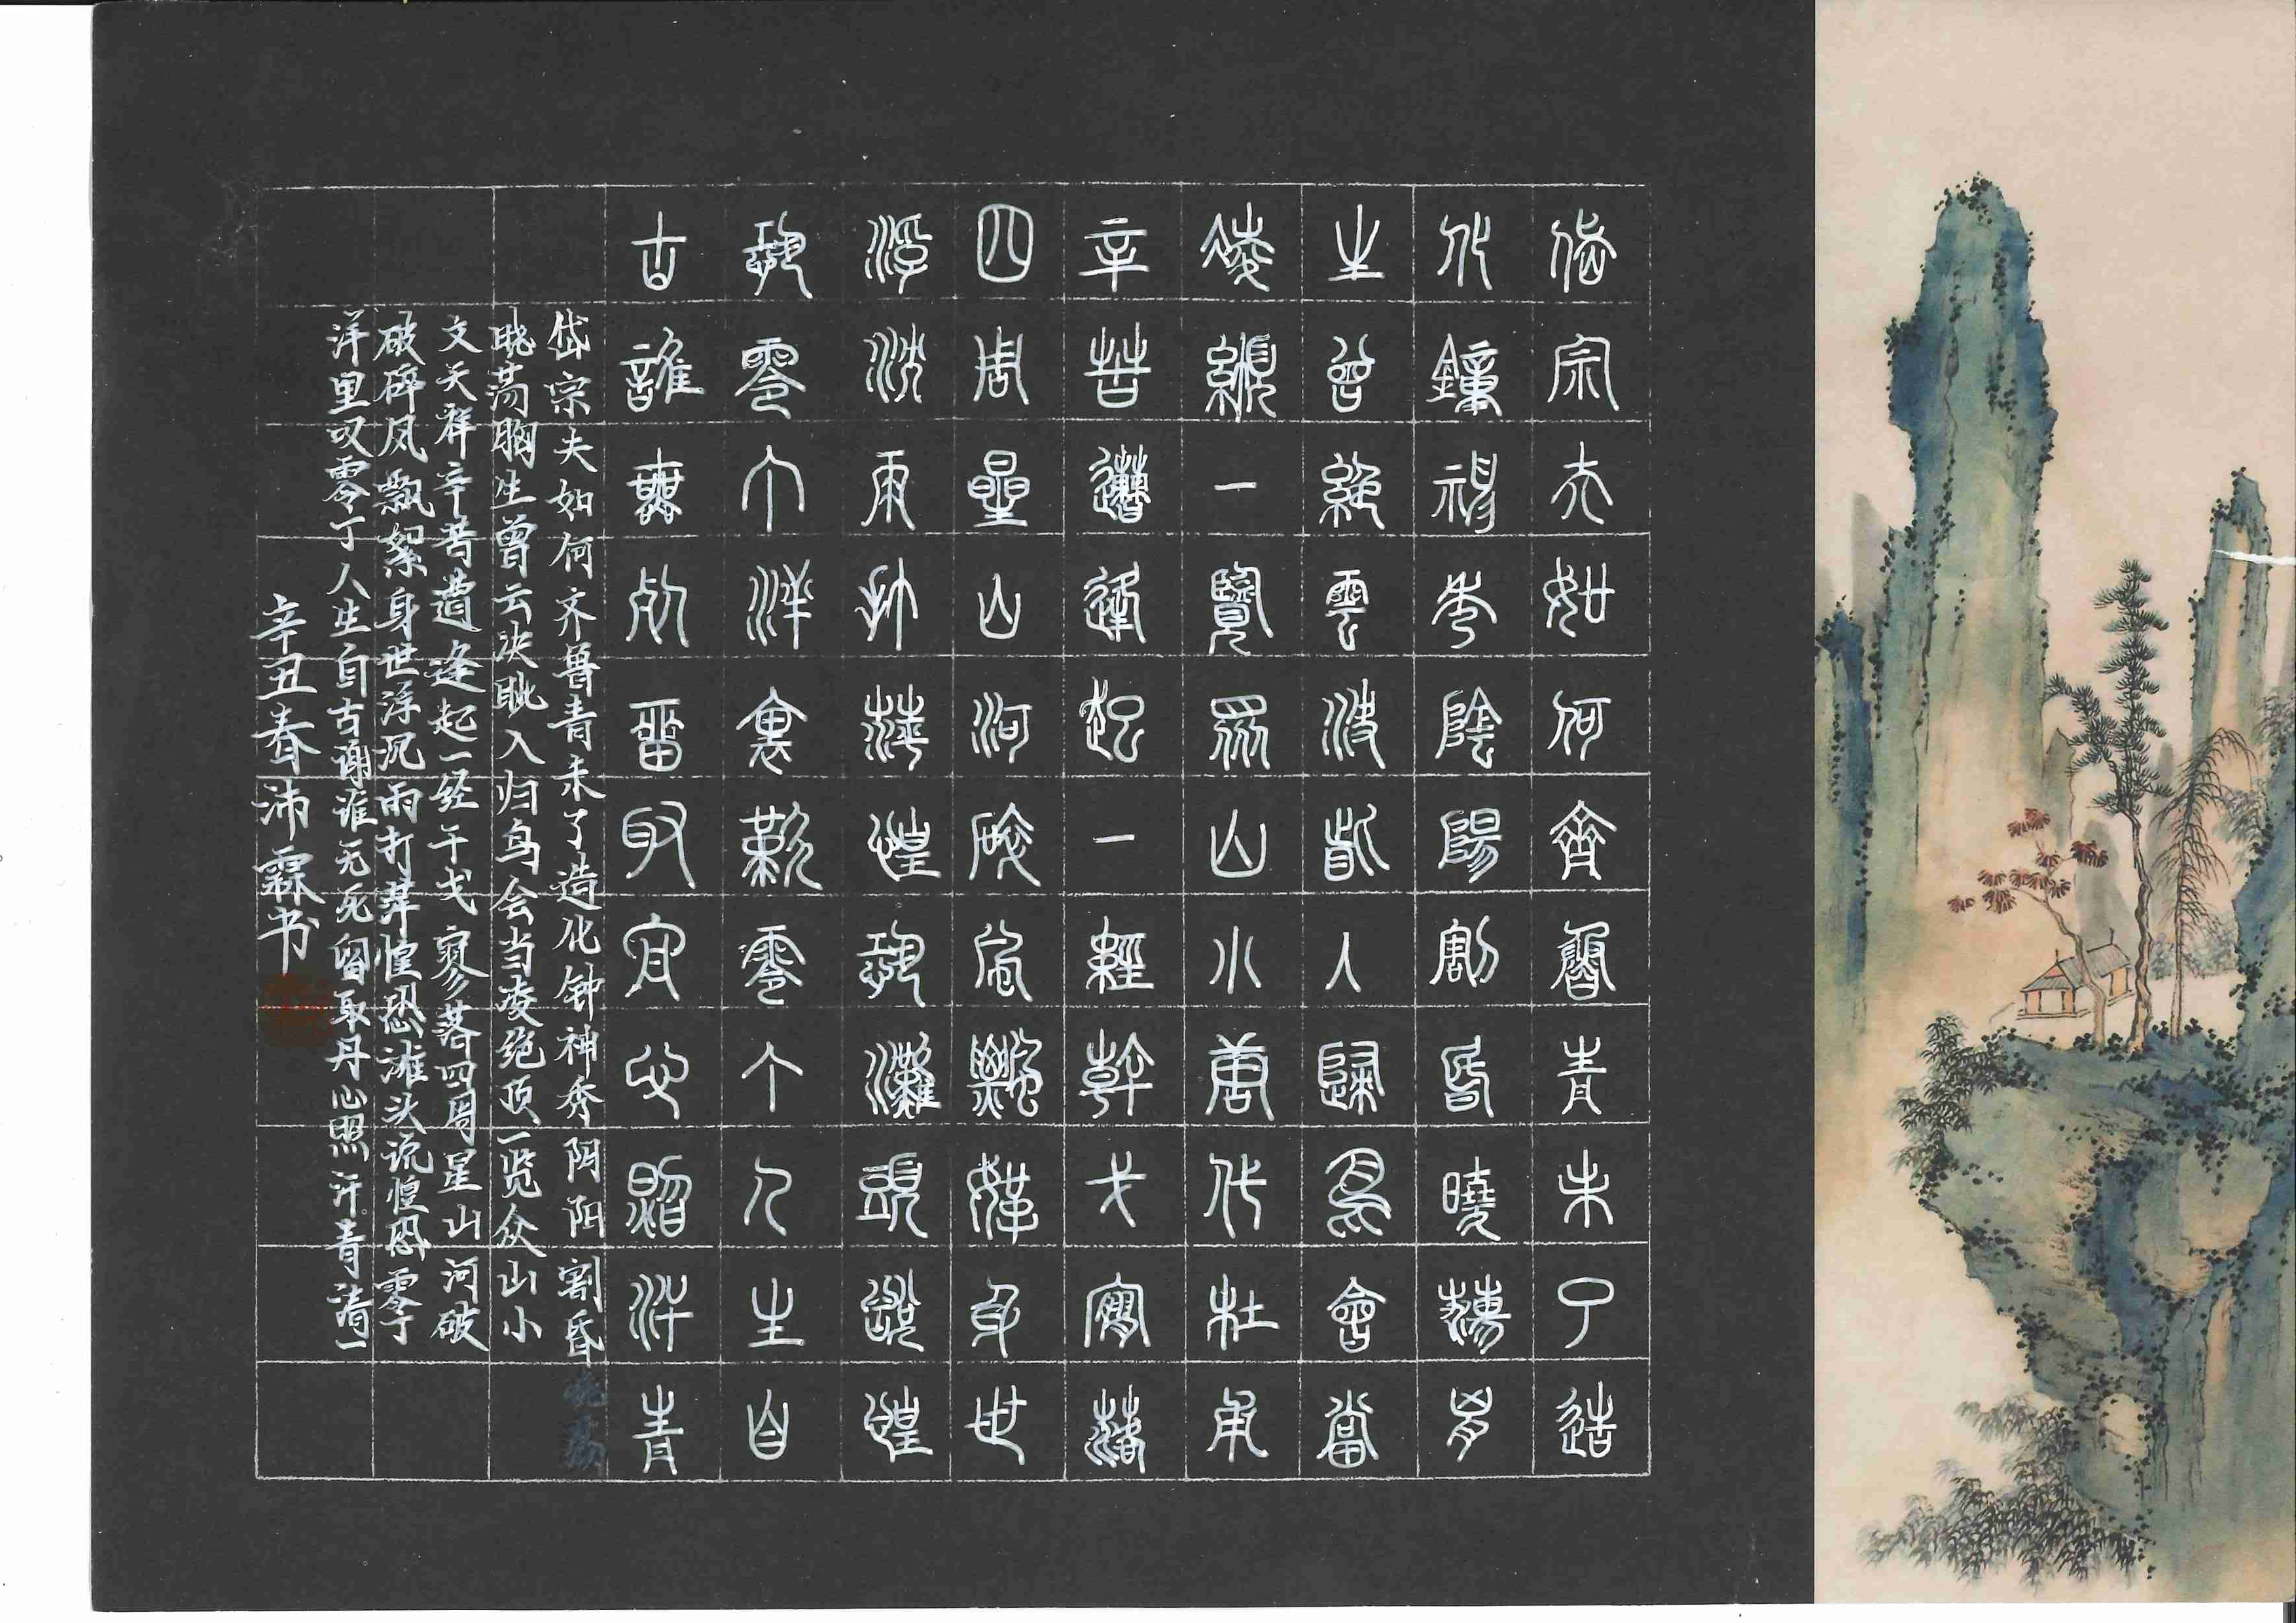 岱宗夫如何齊魯青未了造
化鐘神秀陰陽割昏曉蕩胸
生曾絕雲決眥入歸鳥會當
凌一覽眾山小唐代杜甫
辛苦遭逢起一經幹戈寥落
四周星山河破風飄絮身世
浮沈雨打萍惶恐灘頭說惶
恐零丁洋裏歎零丁人生自
古誰無死留取丹心照汗青
岱宗夫如何齐鲁青未了造化钟神秀阴阳割昏
晓荡胸生曾云决眦入归鸟会当凌绝顶一览众山小
文天祥辛苦遭逢起一经干戈寥落四周星山河破
破碎风飘絮身世浮沉雨打萍惶恐滩头说惶恐零丁
洋里叹零丁人生自古谁无死留取丹心照汗青清一
辛丑春沛霖书